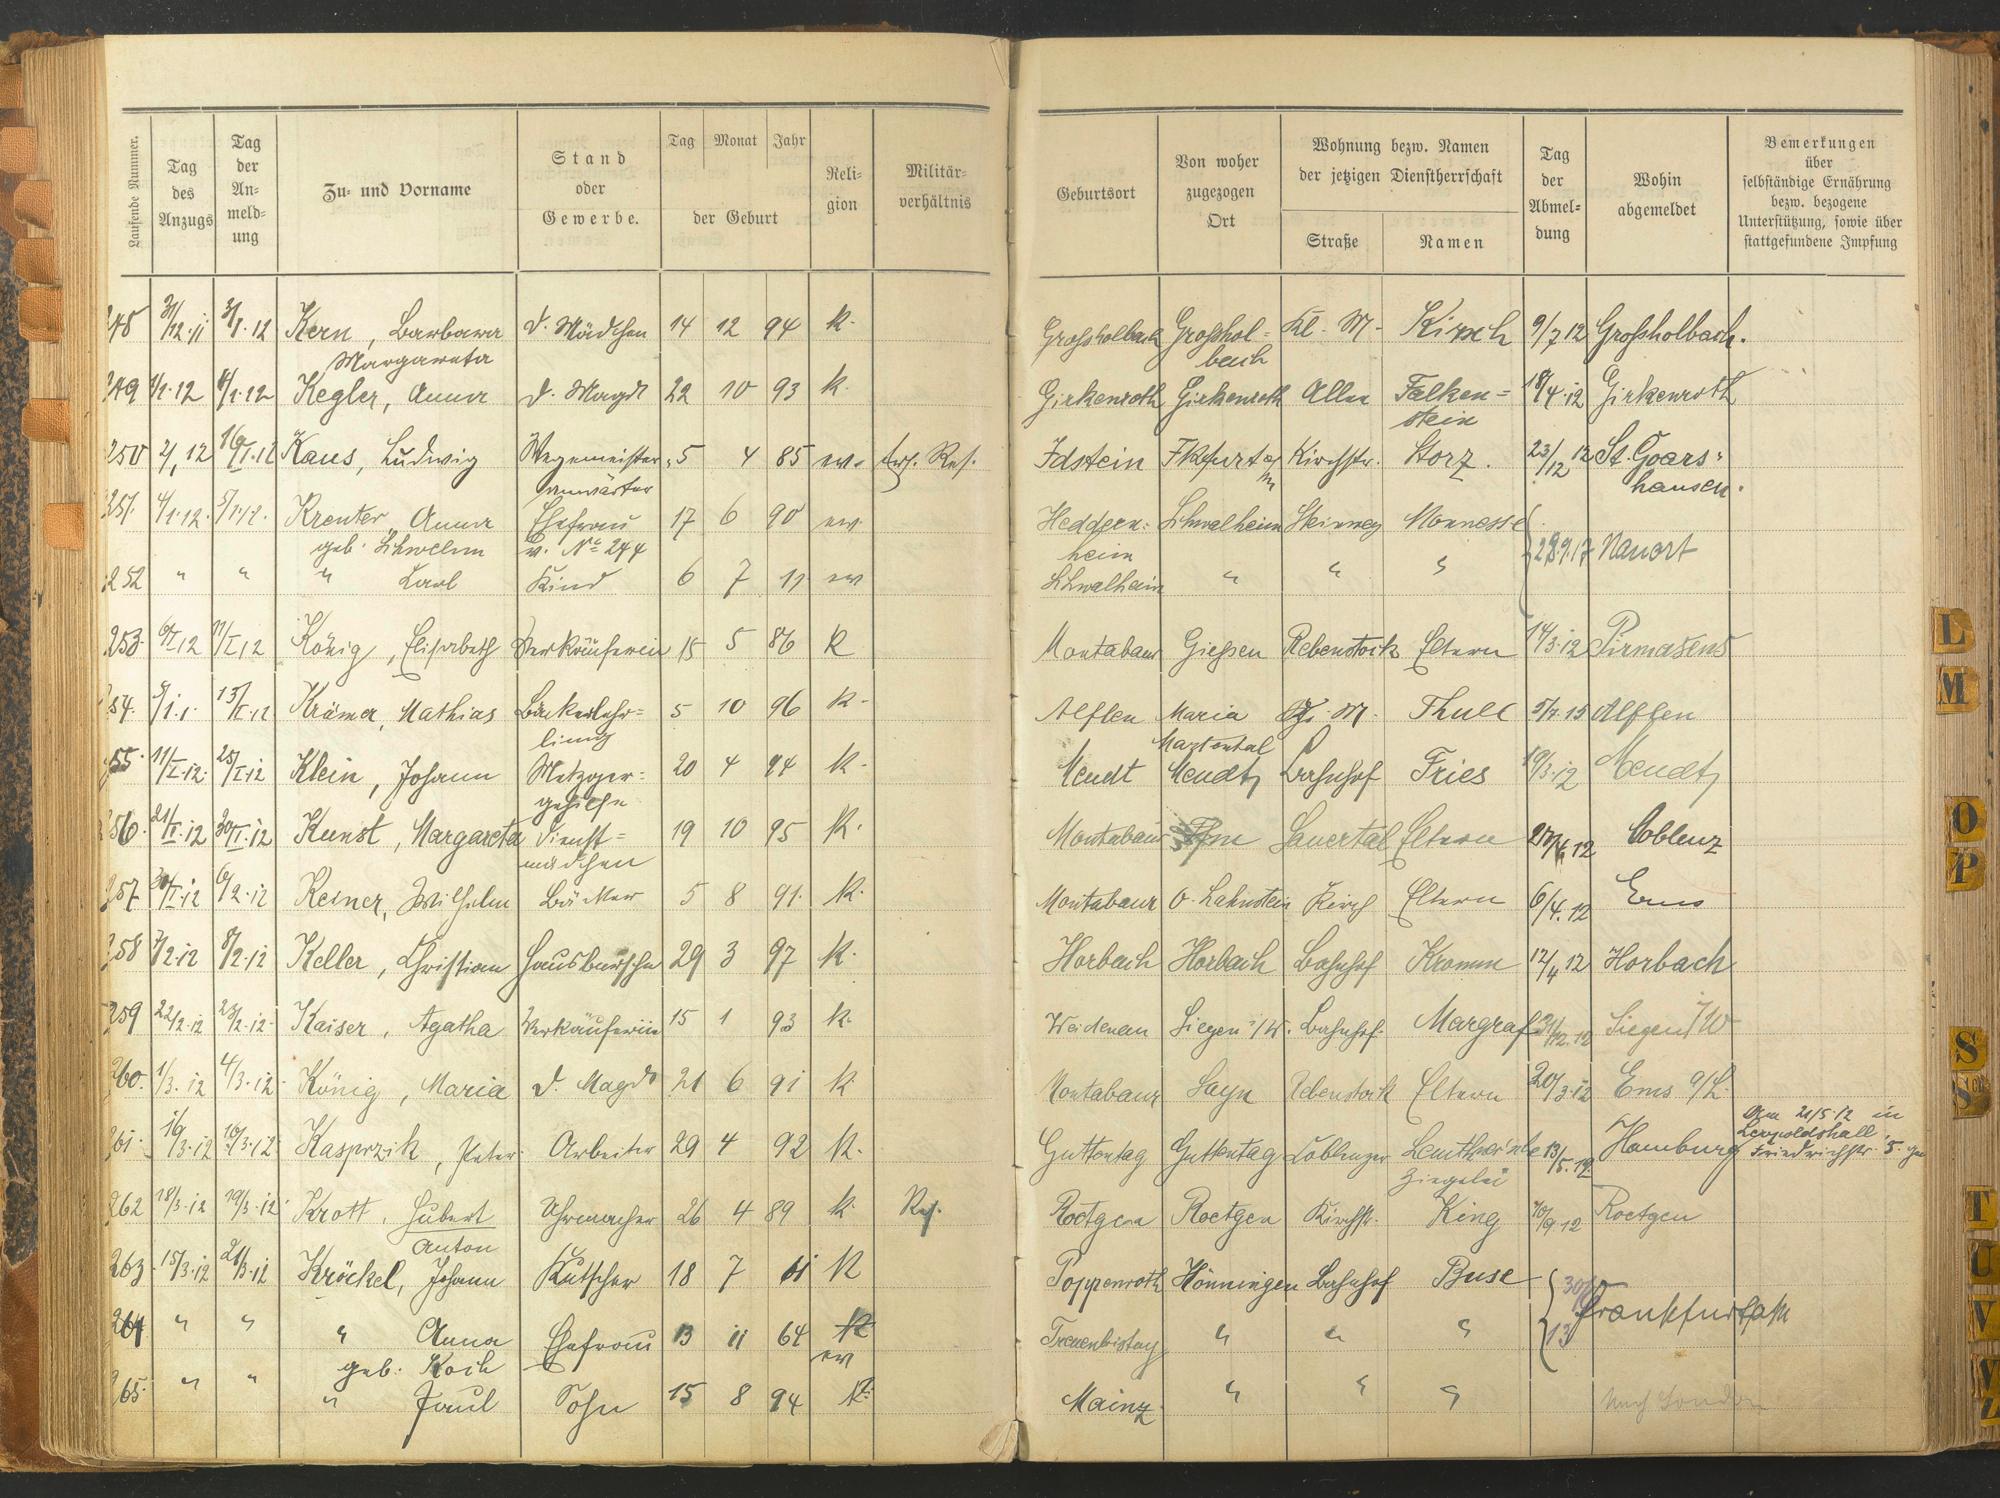 Laufende Nummer.
Tag des Anzugs
Tag der Anmeldung
Zu- und Vorname
Stand oder Gewerbe.
Tag Monat Jahr
der Geburt
Religion
Militärverhältnis
Geburtsort
Von woher zugezogen Ort
Wohnung bezw. Namen der jetzigen Dienstherrschaft
Straße
Namen
Tag der Abmeldung
Wohin abgemeldet
Bemerkungen über selbständige Ernährung bezw. bezogene Unterstützung, sowie über stattgefundene Impfung
248 31/12.11 3/1.12 Kern, Barbara d. Mädchen 14 12 94 k. Großholbach Großhol- Kl. M- Kirsch 9/7 12 Großholbach.
Margareta bach
249 1/1.12 4/1.12 Kegler, Anna d. Magd 22 10 93 k. Girkenroth Girkenroth Allee Falken= 18/4.12 Girkenroth
stein
250 2/1 12 16/I.12 Kaus, Ludwig Wegemeister 5 4 85 ev. Ers. Res. Idstein Fkfurt a/M Kirchstr. Storz. 23/12 12 St. Goars=
anwärter hausen.
251. 4/1.12. 5/1.12. Kreuter, Anna Ehefrau 17 6 90 ev. Heddern= Schwalheim Steinweg
geb. v. No 244 heim 28.9.17 Nauort
252 " " " Karl Kind 6 7 11 ev Schwalheim " " "
253. 9/I 12 11/I 12 König, Elisabeth Verkäuferin 15 5 86 K Montabaur Gießen Rebenstock Eltern 14/3.12 Pirmasens
254. 5/1.1. 13/I.12 Krämer, Mathias Bäckerlehr= 5 10 96 k. Alflen Maria M. Thull 5/7.15 Alflen
ling Martental
255. 11/I.12. 25/I.12 Klein, Johann Metzger= 20 4 94 k. Mendt Mendt Bahnhof Fries 19/3.12 Mendt
gehilfe
256. 21/I.12 30/I.12 Kunst, Margareta Dienst= 19 10 95 k. Montabaur Sauertal Eltern 12 Coblenz
mädchen
257 30/I.12 6/2.12 Keiner, Wilhelm Bäcker 5 8 91. k. Montabaur O. Lahnstein Kirch Eltern 6/4.12 Ems
258 7/2.12 8/2.12 Keller, Christian Hausbursche 29 3 97 k. Horbach Horbach Bahnhof Kromm 12/4 12 Horbach
259 22/2.12 23/2.12. Kaiser, Agatha Verkäuferin 15 1 93 k. Weidenau Siegen i/W. Bahnhof. Margraf 31/12.12 Siegen i/W
260. 1/3.12 4/3.12. König, Maria d. Magd 21 6 91 k Montabaur Sayn Rebenstock Eltern 20/3.12 Ems a/L.
261. 16/3.12 19/3.12. Kasprzik, Peter Arbeiter 29 4 92 k. Guttentag Guttentag Coblenzer 13/5.12. Hamburg Am 21/5 12 in
Ziegelei Leopoldshall
Friedrichstr. 5.
262 18/3.12 19/3.12. Krott, Hubert Uhrmacher 26 4 89 k. Res. Roetgen Roetgen Kirchstr. King 10/9.12 Roetgen
Anton
263 15/3.12 21/3.12 Kröckel, Johann Kutscher 18 7 61 K Poppenroth Hönningen Bahnhof Buse 30/
264 " " " Anna Ehefrau 13 11 64 k " " " 13 Frankfurt a/M
geb. Koch ev
265. " " " Paul Sohn 15 8 94 k. Mainz. " " " Nach London
L
M
O
P
S
T
U
V
Z